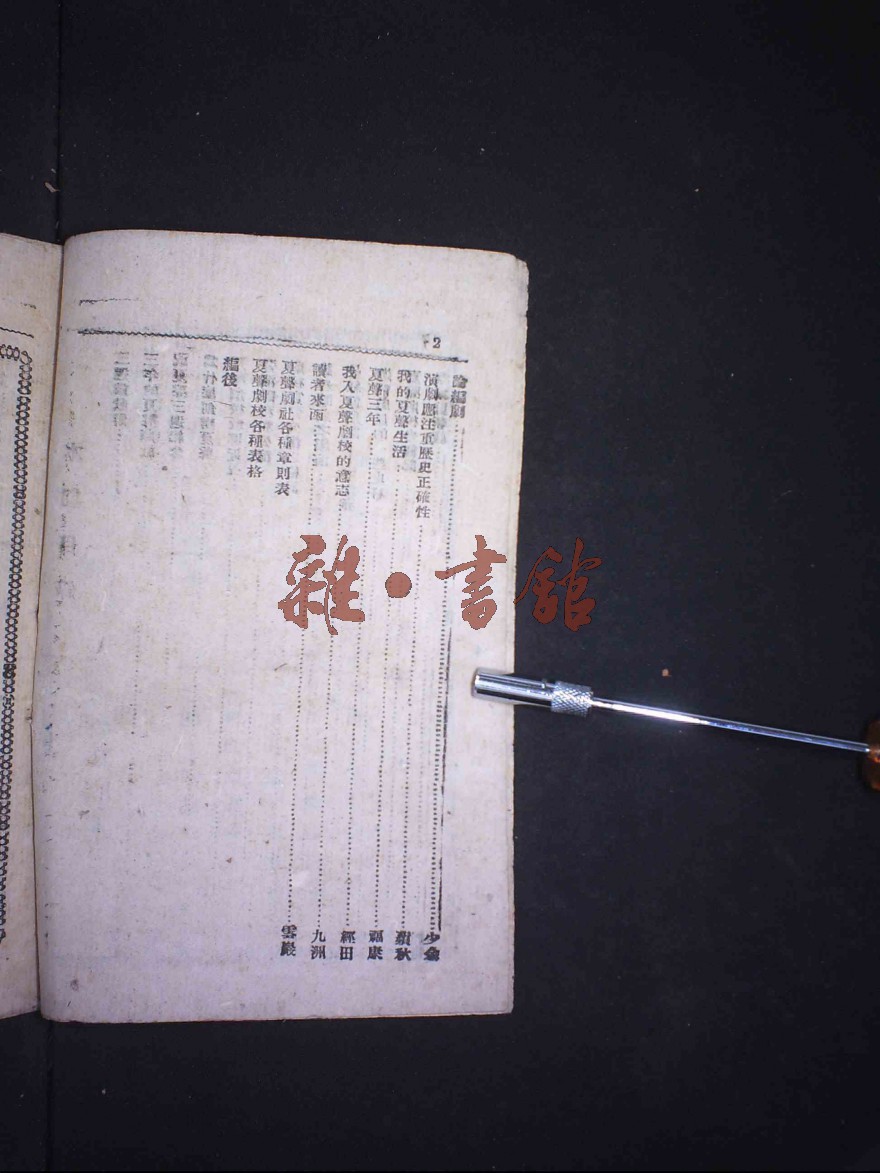 2
論編劇
演劇應注重歷史正確性 少
我的夏聲生活 秋
夏聲三年 福康
我入夏聲劇校的意志 經田
讀者來函 九洲
夏聲劇社各種章則表 雲巖
夏聲劇校各種表格
編後
雜·書館